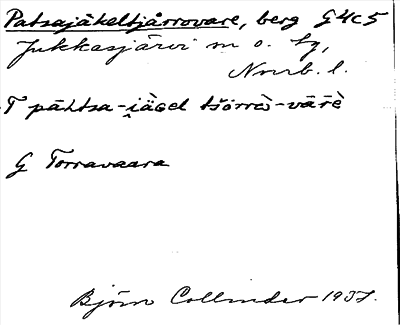 Patsajåkeltjårrovare, berg G4c5
Jukkasjärvi sn o. tg,
Norrb. l.
T pāhtsa-i̯ägel tšǒrrò-vārè
G Torravaara
Björn Collinder 1937.